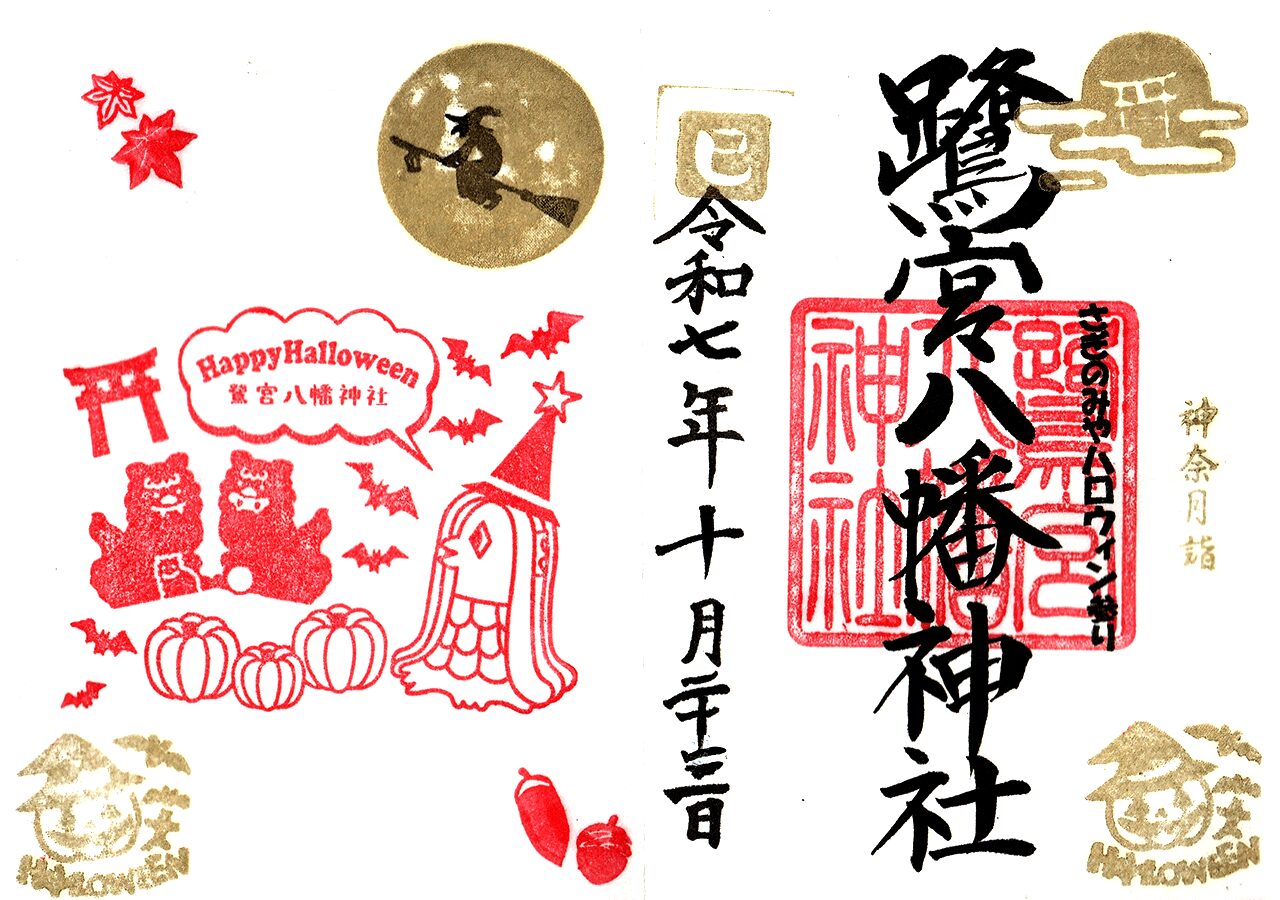 鷺宮八幡神社
神奈月詣
さぎのみやハロウィン参り
鷺宮八幡神社
巳
令和七年十月二十三日
HappyHalloween
鷺宮八幡神社
HALLOWEEN
HALLOWEEN